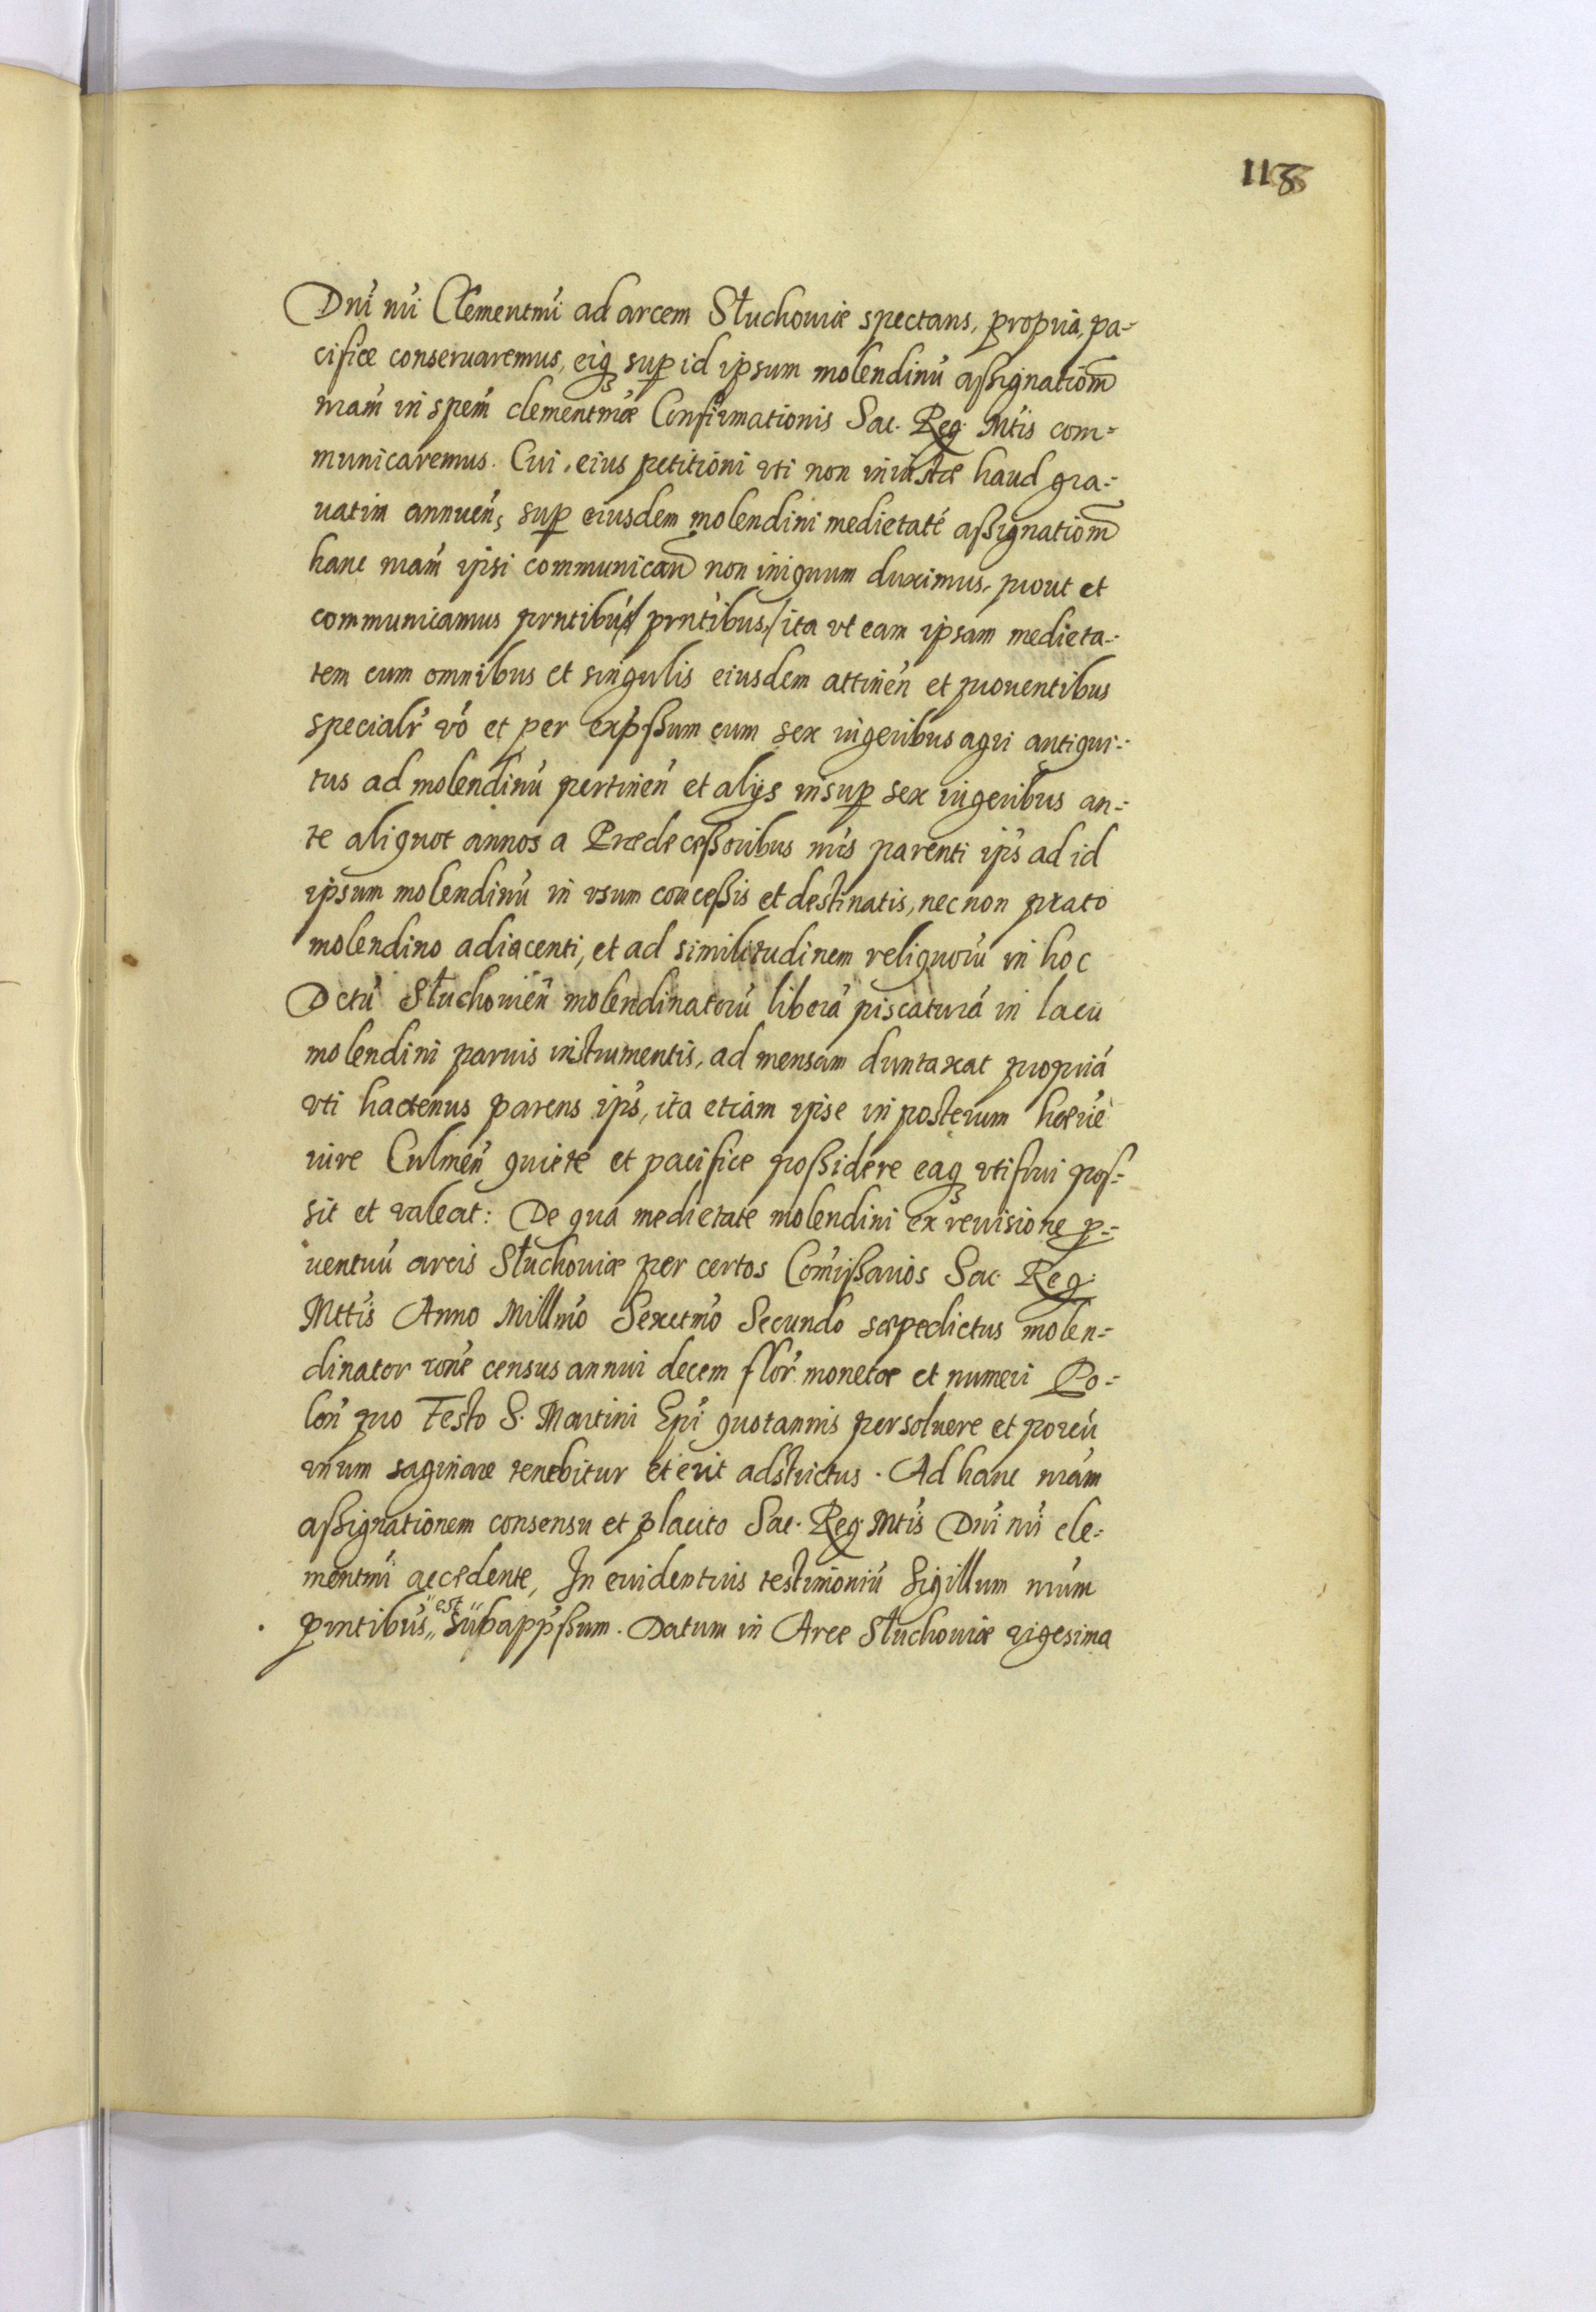 118
Dni nri Clementmi ad arcem Słuchoviæ spectans, propria, pa-
cifice conservaremus, eiq3 sup id ipsum molendinũ aßignatiom
nram in spem clementmæ Confirmationis Sac. Reg. Mtis com=
municaremus. Cui eius petitioni vti non iniustæ haud gra-
vatim annuen, sup eiusdem molendini medietatẽ aßignatiom
hanc nram ipsi communican non iniquum duximus, prout et
communicamus prntibus/ prntibus,/ ita vt eam ipsam medieta-
tem cum omnibus et singulis eiusdem attinen et proventibus
specialr vo et per expßum cum sex iugeribus agri antiqui-
tus ad molendinũ pertinen et alijs insup sex iugeribus an-
te aliquot annos a Prædeceßoribus nris parenti ips ad id
ipsum molendinũ in vsum conceßis et destinatis, nec non prato
molendino adiacenti, et ad similitudinem reliquorũ in hoc
Dctũ Słuchovien molendinatorũ liberã piscaturã in lacu
molendini parvis instrumentis, ad mensam duntaxat propriã
vti hactenus parens ips, ita etiam ipse in posterum hærie
iure Culmen quiete et pacifice poßidere eaq3 vti frui pos-
sit et valeat: De qua medietate molendini ex revisione p-
ventuũ arcis Słuchoviæ per certos Comißarios Sac. Reg.
Mttis Anno Millmo Sexctmo Secundo sæpedictus molen=
dinator rone census annui decem flor monetæ et numeri Po=
lon pro Festo S. Martini Epi quotannis persolvere et porcũ
vnum saginare tenebitur et erit adstrictus. Ad hanc nram
aßignationem consensu et placito Sac. Reg. Mtis Dni nri cle=
mentmi accedente, In evidentius testimoniũ Sigillum nrum
prntibus,, "est" subappßum. Datum in Arce Słuchoviæ vigesima